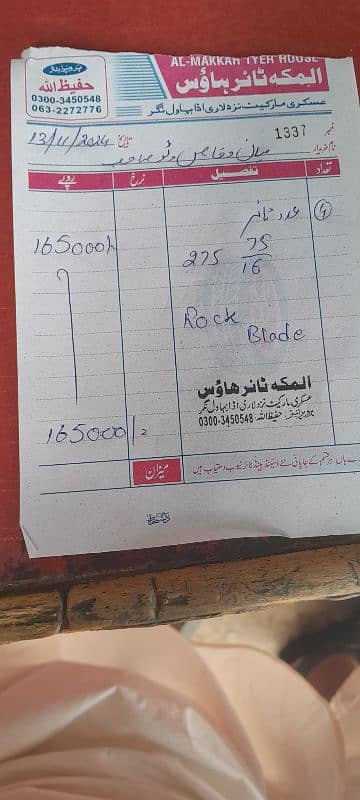 AL-MAKKAH TYER HOUSE
المکہ ٹائر ہاؤس
حفیظ اللہ
0300-3450548
063-2272776
عسکری مارکیٹ نزد لاری اڈا بہاول نگر
نمبر 1337
تاریخ 13/11/2024
نام خریدار میاں وقاص وٹو صاحب
تعداد تفصیل نرخ روپے
4 عدد ٹائر 165000/-
275 75/16
Rock
Blade
المکہ ٹائر ہاؤس
عسکری مارکیٹ نزد لاری اڈا بہاول نگر
پروپرائٹر: حفیظ اللہ 0300-3450548
165000/-
میزان
ہاں ہر قسم کے جاپانی نئے و سیکنڈ ہینڈ ٹائر ٹیوب دستیاب ہیں